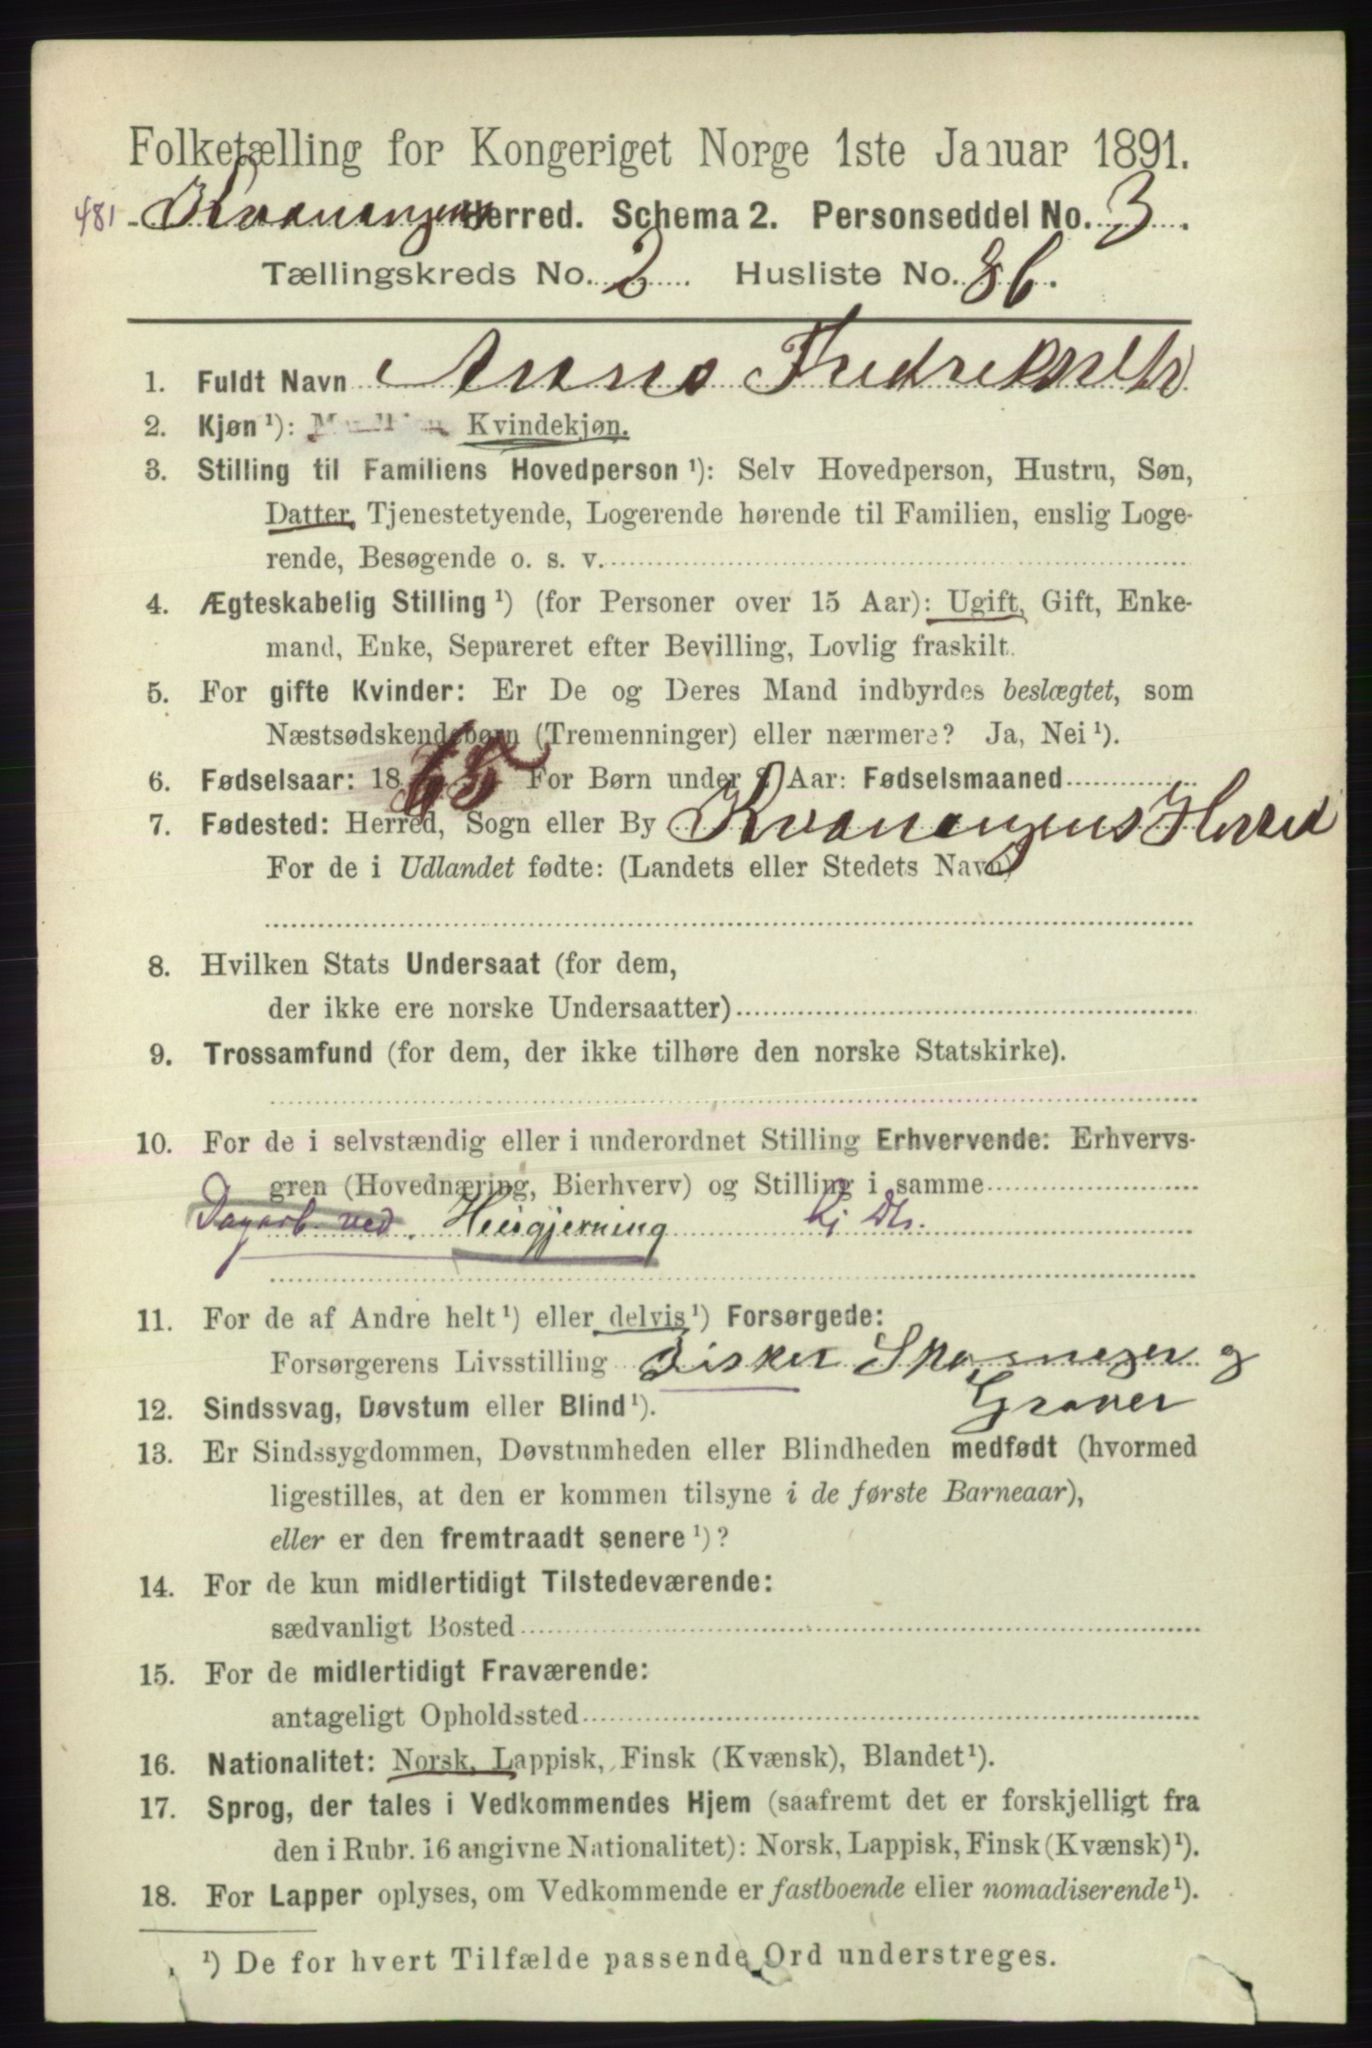 Folketælling for Kongeriget Norge 1ste Januar 1891.
481 Kvænangens Herred. Schema 2. Personseddel No. 3.
Tællingskreds No. 2 Husliste No. 86.
1. Fuldt Navn Anna Fredriksdtr
2. Kjøn ¹): Kvindekjøn.
3. Stilling til Familiens Hovedperson ¹): Selv Hovedperson, Hustru, Søn,
Datter, Tjenestetyende, Logerende hørende til Familien, enslig Loge-
rende, Besøgende o. s. v.
4. Ægteskabelig Stilling ¹) (for Personer over 15 Aar): Ugift, Gift, Enke-
mand, Enke, Separeret efter Bevilling, Lovlig fraskilt.
5. For gifte Kvinder: Er De og Deres Mand indbyrdes beslægtet, som
Næstsødskendebørn (Tremenninger) eller nærmere? Ja, Nei ¹).
6. Fødselsaar: 1865 For Børn under 2 Aar: Fødselsmaaned
7. Fødested: Herred, Sogn eller By Kvænangens Herred
For de i Udlandet fødte: (Landets eller Stedets Navn)
8. Hvilken Stats Undersaat (for dem,
der ikke ere norske Undersaatter)
9. Trossamfund (for dem, der ikke tilhøre den norske Statskirke).
10. For de i selvstændig eller i underordnet Stilling Erhvervende: Erhvervs-
gren (Hovednæring, Bierhverv) og Stilling i samme
Dagarb. ved. Huusgjerning
11. For de af Andre helt ¹) eller delvis ¹) Forsørgede:
Forsørgerens Livsstilling Fisker Skomager og
Graver
12. Sindssvag, Døvstum eller Blind ¹).
13. Er Sindssygdommen, Døvstumheden eller Blindheden medfødt (hvormed
ligestilles, at den er kommen tilsyne i de første Barneaar),
eller er den fremtraadt senere ¹)?
14. For de kun midlertidigt Tilstedeværende:
sædvanligt Bosted
15. For de midlertidigt Fraværende:
antageligt Opholdssted
16. Nationalitet: Norsk, Lappisk, Finsk (Kvænsk), Blandet ¹).
17. Sprog, der tales i Vedkommendes Hjem (saafremt det er forskjelligt fra
den i Rubr. 16 angivne Nationalitet): Norsk, Lappisk, Finsk (Kvænsk) ¹).
18. For Lapper oplyses, om Vedkommende er fastboende eller nomadiserende ¹).
¹) De for hvert Tilfælde passende Ord understreges.